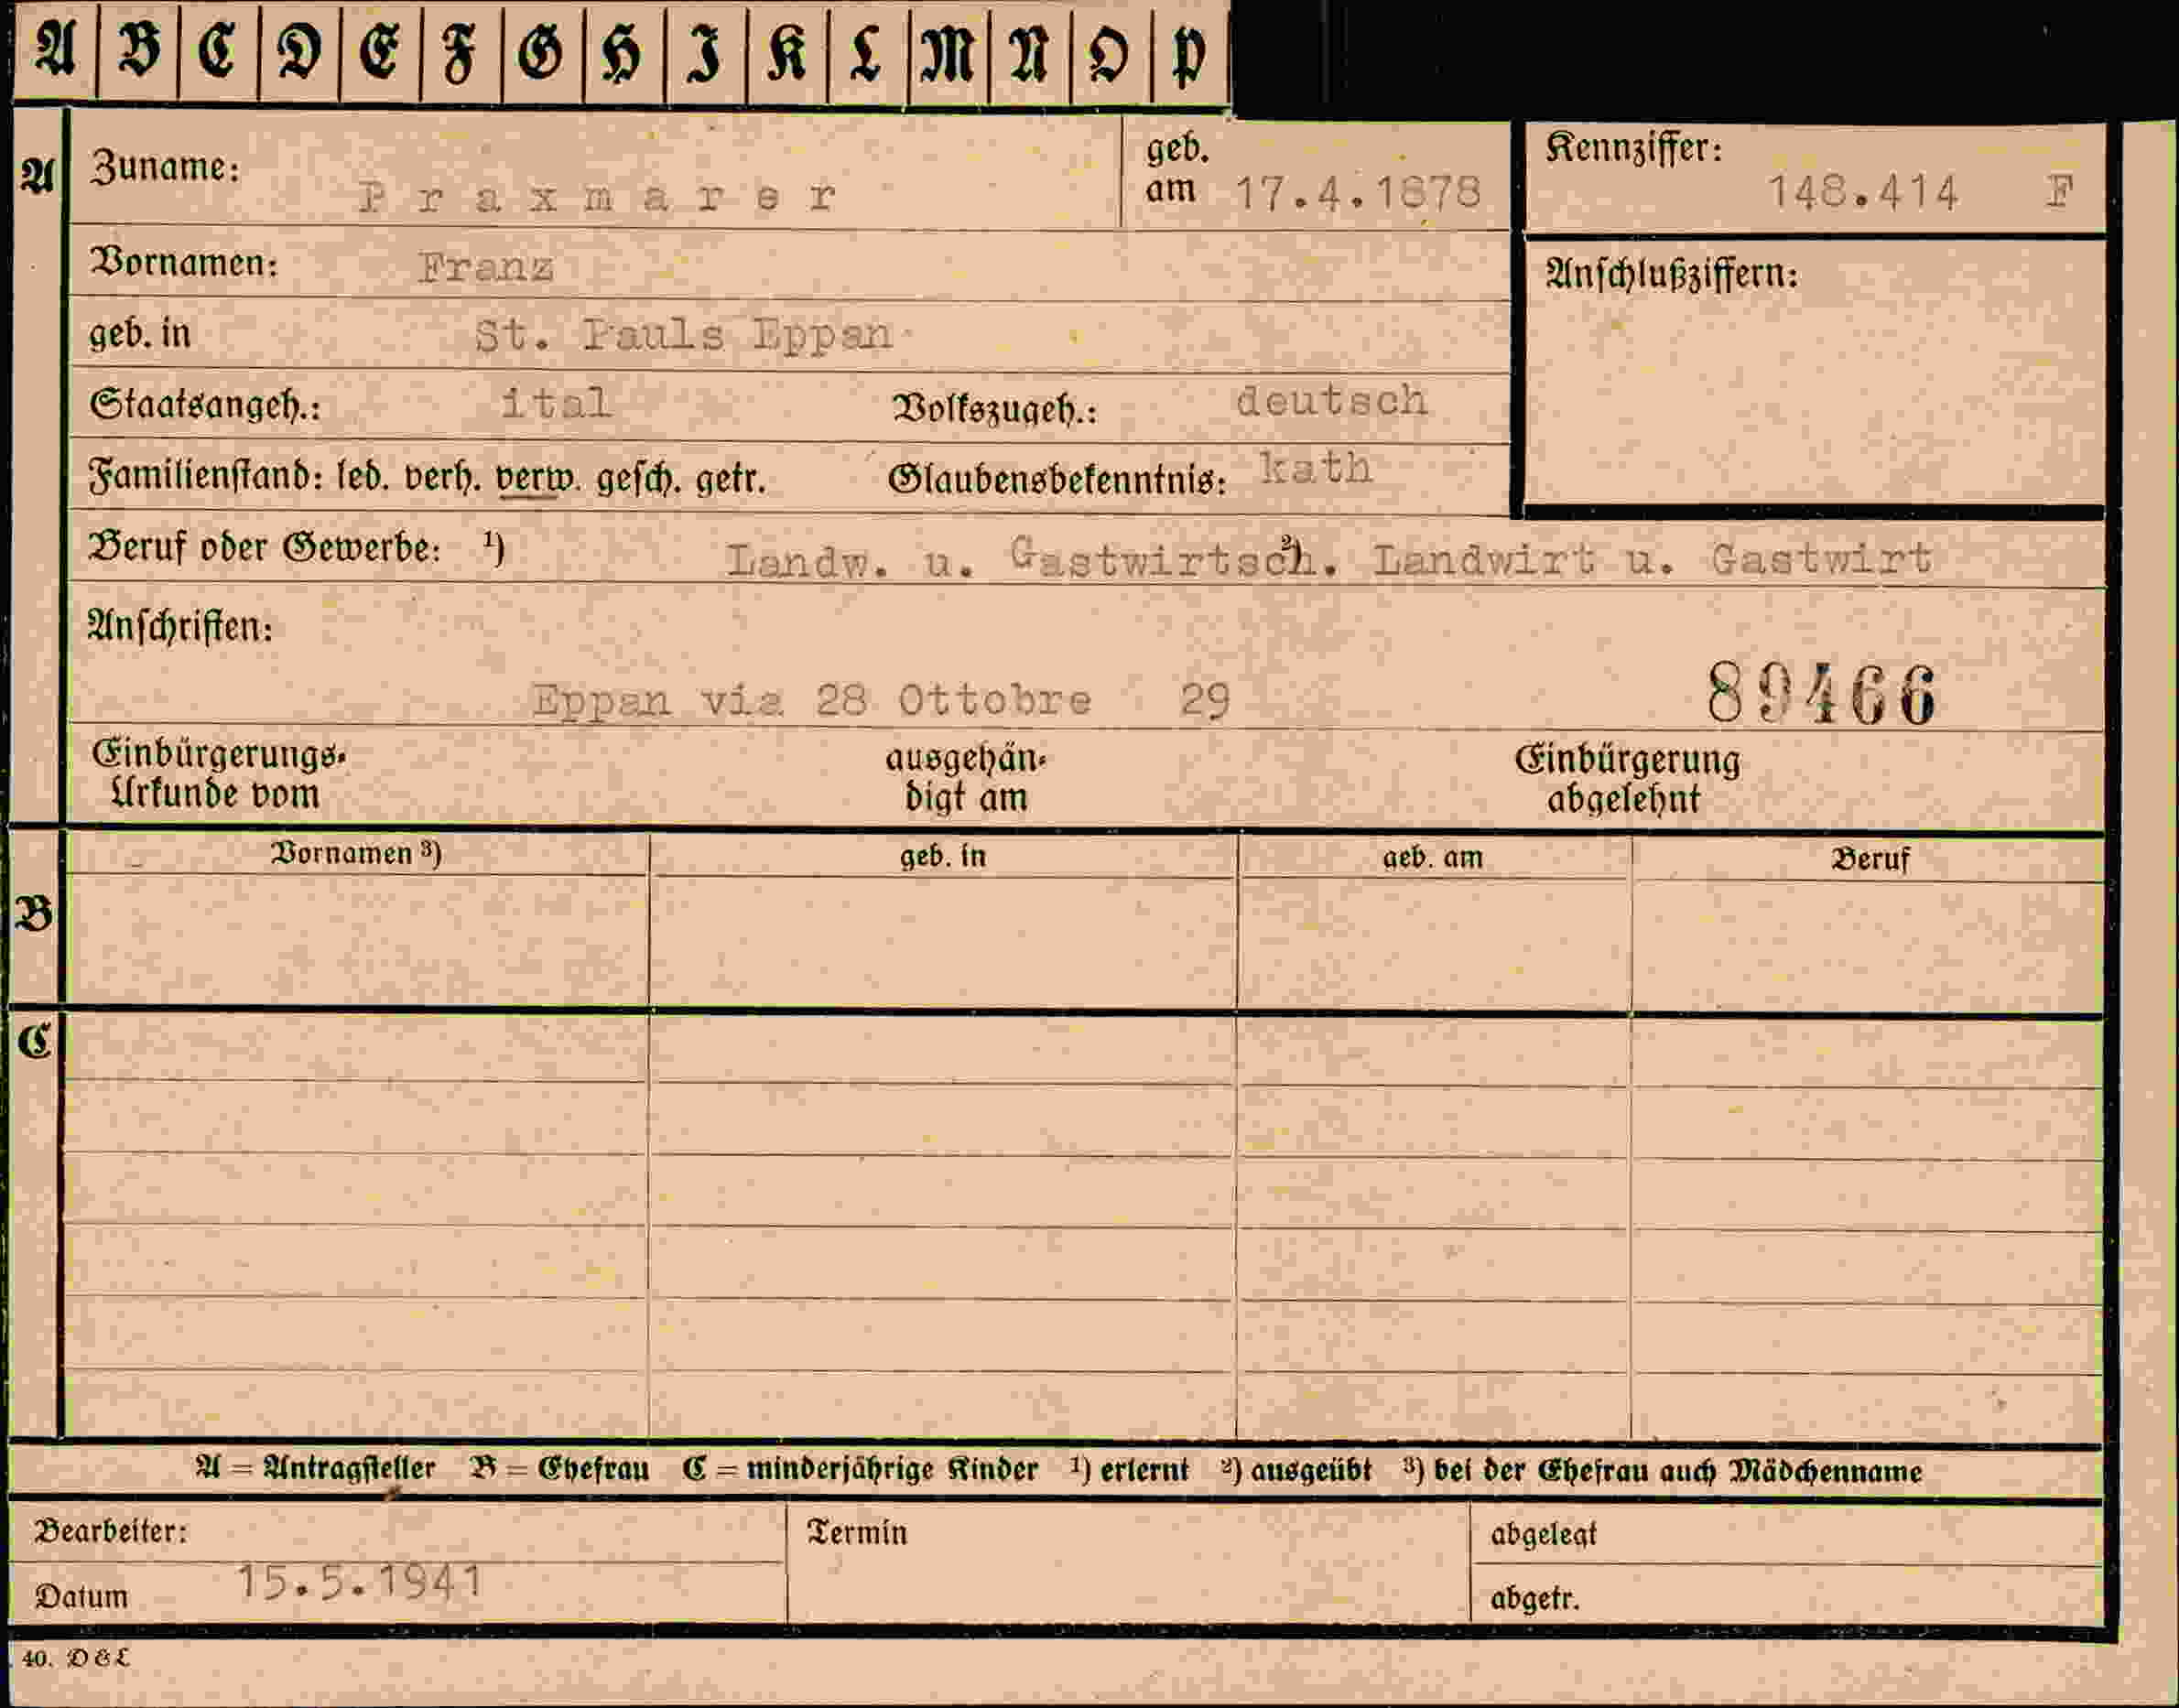 A B C D E F G H I K L M N O P
A Zuname: Praxmarer geb. am 17.4.1878 Kennziffer: 148.414 F
Vornamen: Franz Anschlußziffern:
geb. in St. Pauls Eppan
Staatsangeh.: ital Volkszugeh.: deutsch
Familienstand: led. verh. verw. gesch. getr. Glaubensbekenntnis: kath
Beruf oder Gewerbe: ¹) Landw. u. Gastwirtsch. ²) Landwirt u. Gastwirt
Anschriften:
89466
Eppan via 28 Ottobre 29
Einbürgerungs- ausgehän- Einbürgerung
Urkunde vom digt am abgelehnt
Vornamen ³) geb. in geb. am Beruf
B
C
A = Antragsteller B = Ehefrau C = minderjährige Kinder ¹) erlernt ²) ausgeübt ³) bei der Ehefrau auch Mädchenname
Bearbeiter: Termin abgelegt
Datum 15.5.1941 abgetr.
40. D & L